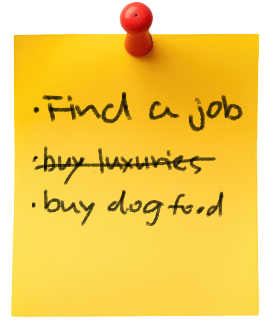 · Find a job
· buy luxuries
· buy dog food